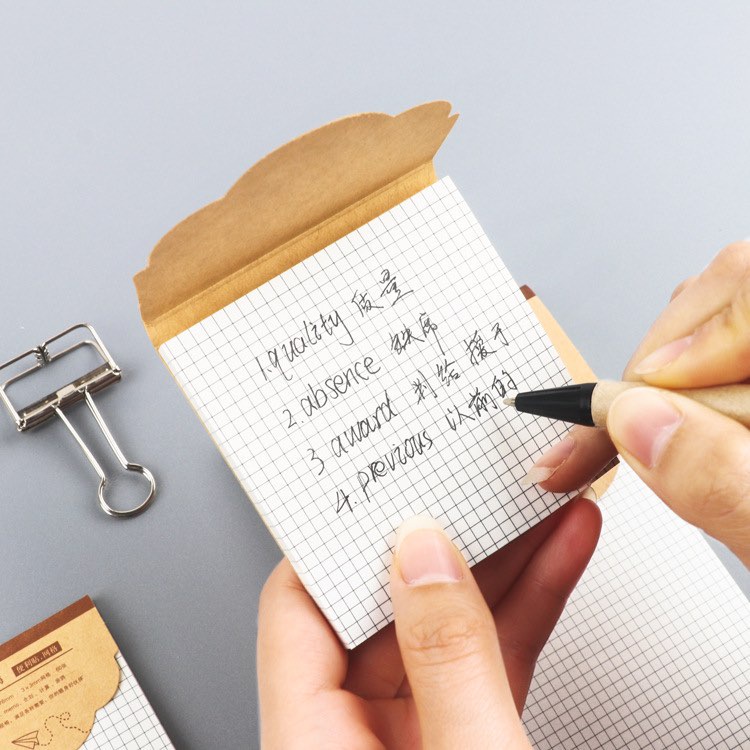 1.quality 质量
2.absence 缺席
3 award 判给 授予
4.previous 以前的
便利贴 网格